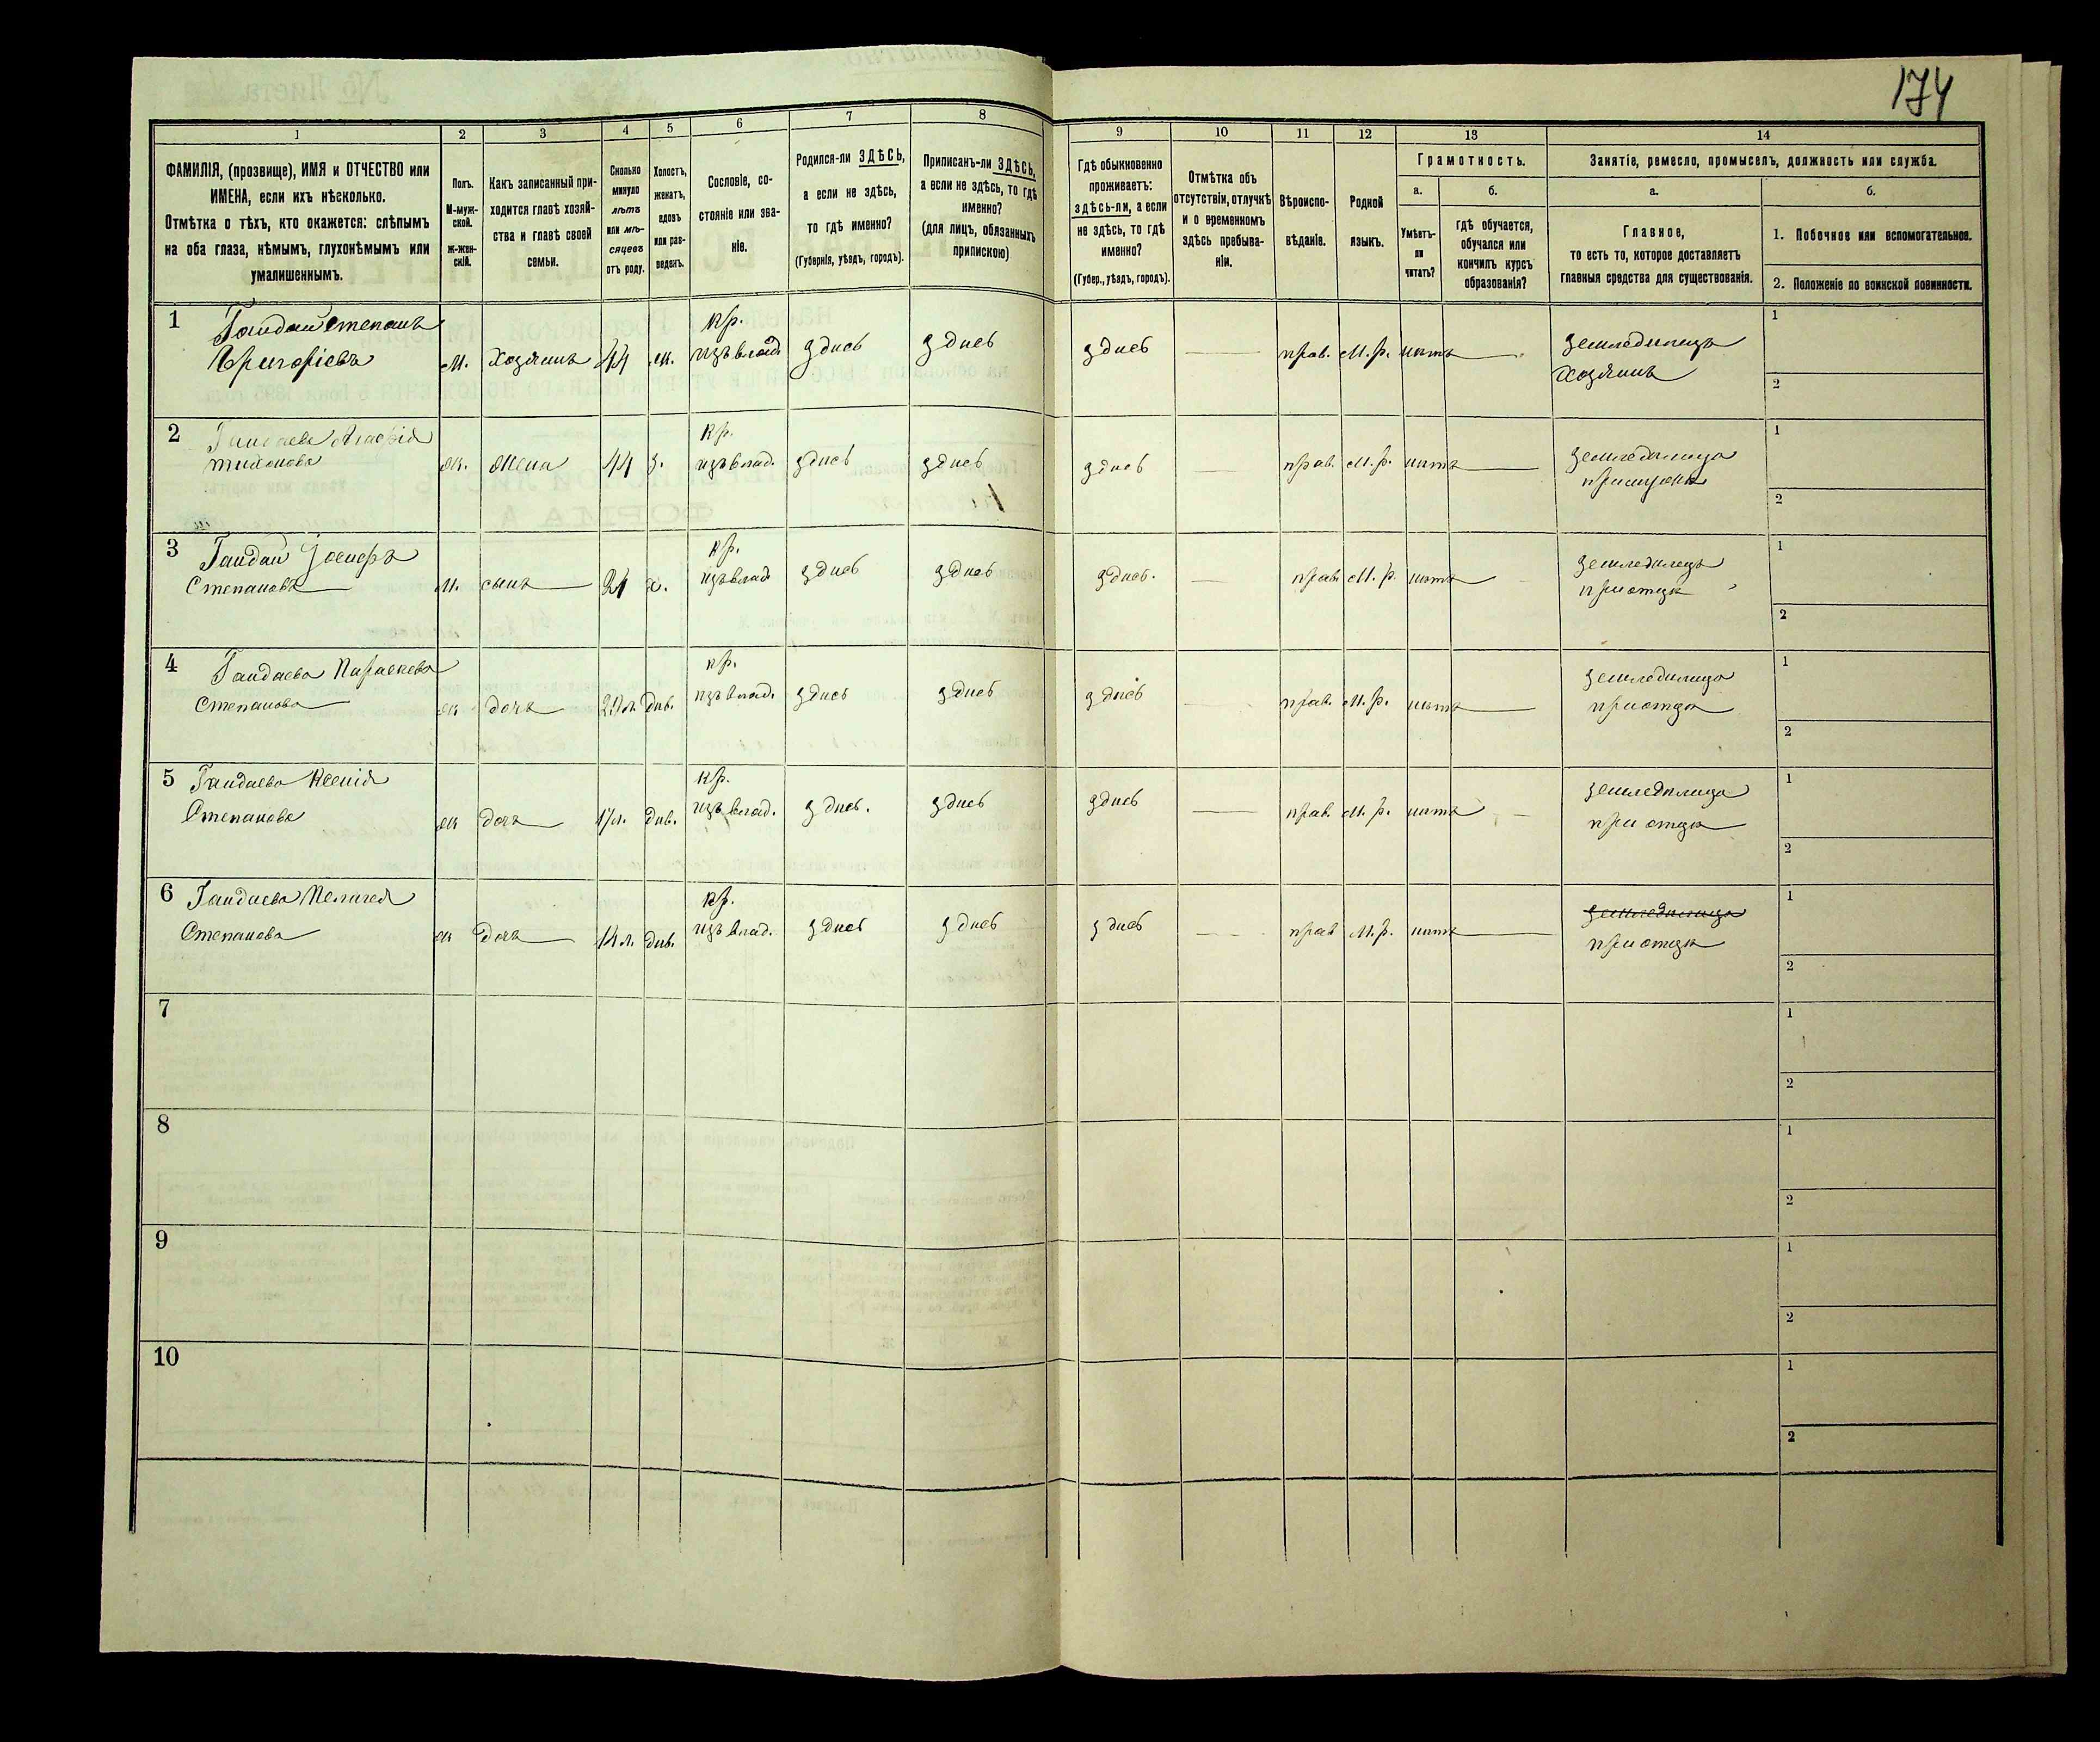 174
1 2 3 4 5 6 7 8 9 10 11 12 13 14
ФАМИЛІЯ, (прозвище), ИМЯ и ОТЧЕСТВО или
ИМЕНА, если ихъ нѣсколько.
Отмѣтка о тѣхъ, кто окажется: слѣпымъ
на оба глаза, нѣмымъ, глухонѣмымъ или
умалишеннымъ.
Полъ.
М-муж-
ской.
ж-жен-
скій.
Какъ записанный при-
ходится главѣ хозяй-
ства и главѣ своей
семьи.
Сколько
минуло
лѣтъ
или мѣ-
сяцевъ
отъ роду.
Холостъ,
женатъ,
вдовъ
или раз-
веденъ.
Сословіе, со-
стояніе или зва-
ніе.
Родился-ли ЗДѢСЬ,
а если не здѣсь,
то гдѣ именно?
(Губернія, уѣздъ, городъ).
Приписанъ-ли ЗДѢСЬ,
а если не здѣсь, то гдѣ
именно?
(для лицъ, обязанныхъ
припискою)
Гдѣ обыкновенно
проживаетъ:
здѣсь-ли, а если
не здѣсь, то гдѣ
именно?
(Губер., уѣздъ, городъ).
Отмѣтка объ
отсутствіи, отлучкѣ
и о временномъ
здѣсь пребыва-
ніи.
Вѣроиспо-
вѣданіе.
Родной
языкъ.
Грамотность.
а.
Умѣетъ-
ли
читать?
б.
гдѣ обучается,
обучался или
кончилъ курсъ
образованія?
Занятіе, ремесло, промыселъ, должность или служба.
а.
Главное,
то есть то, которое доставляетъ
главныя средства для существованія.
б.
1. Побочное или вспомогательное.
2. Положеніе по воинской повинности.
1 Гайдай Степанъ кр. 1
Григорьевъ м. Хозяинъ 44 ж. изъ влад. здѣсь здѣсь здѣсь — прав. М. р. нѣтъ — земледѣлецъ
Хозяинъ
2
2 Гайдаева кр. 1
Тихонова ж. жена 44 з. изъ влад. здѣсь здѣсь здѣсь — прав. М. р. нѣтъ — земледѣлица
при мужѣ
2
3 Гайдай кр. 1
Степановъ м. сынъ 21 х. изъ влад. здѣсь здѣсь здѣсь. — прав. М. р. нѣтъ — земледѣлецъ
при отцѣ
2
4 Гайдаева Параскева кр. 1
Степанова ж дочь дѣв. изъ влад. здѣсь здѣсь здѣсь прав. М. р. нѣтъ — земледѣлица
при отцѣ
2
5 Гайдаева Ксенія кр. 1
Степанова ж дочь 17 л. дѣв. изъ влад. здѣсь. здѣсь здѣсь — прав. М. р. нѣтъ — земледѣлица
при отцѣ
2
6 Гайдаева Пелагея кр. 1
Степанова ж дочь 14 л. дѣв. изъ влад. здѣсь здѣсь здѣсь — прав М. р. нѣтъ — земледѣлица
при отцѣ
2
7 1
2
8 1
2
9 1
2
10 1
2